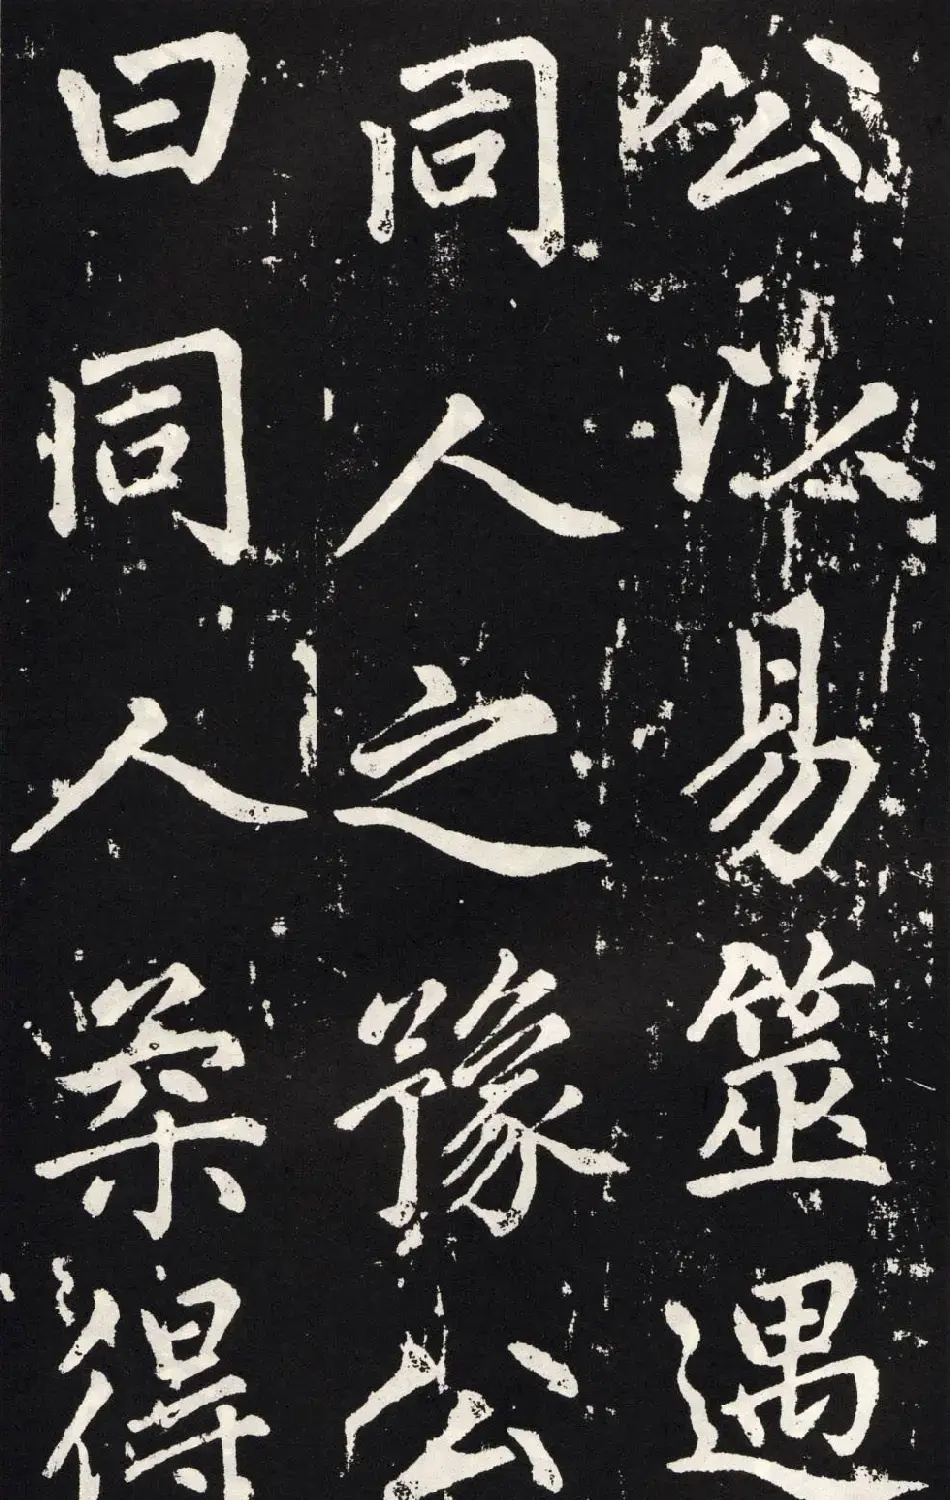 公以易筮遇
同人之豫公
曰同人柔得